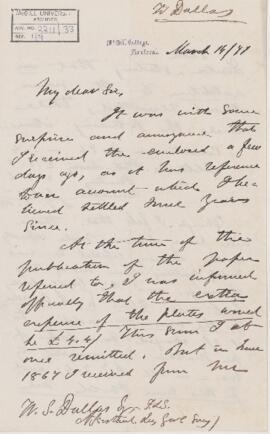 McGILL UNIVERSITY
ARCHIVES
ACC. NO. 2211/33
REF.
W Dallas
McGill College,
Montreal
March 16/77
My dear Sir,
It was with some
surprise and annoyance that
I received the enclosed a few
days ago, as it has reference
to an account which I be-
lieved settled some years
since.
At the time of the
publication of the paper
referred to, I was informed
officially that the extra
expense of the plates would
be £4.4/ This sum I at
once remitted. But in June
1867 I received from Mr
W. S. Dallas Esqr F.L.S.